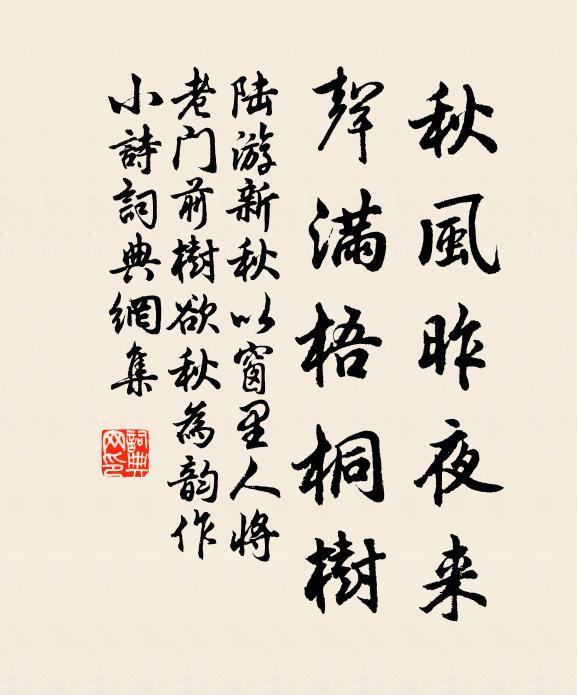 秋風昨夜来
聲满梧桐樹
陆游新秋以窗里人將
老门前樹欲秋為韵作
小詩詞典網集
詞典网印